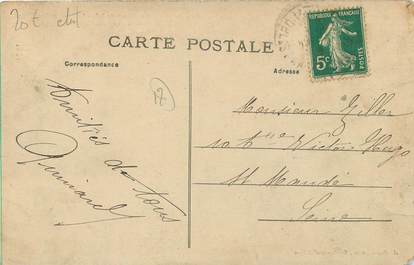 20t
CARTE POSTALE
Correspondance
Adresse
REPUBLIQUE FRANÇAISE
5c
POSTES
12
Amitiés de tous
Monsieur
10 Victor Hugo
St Mandé
Seine